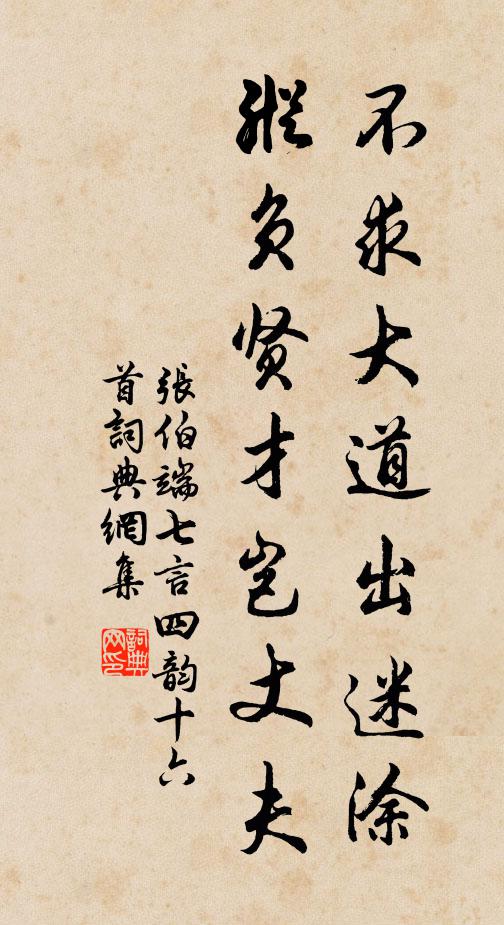 不求大道出迷涂
縱负贤才岂丈夫
張伯端七言四韵十六
首詞典網集
詞典网印